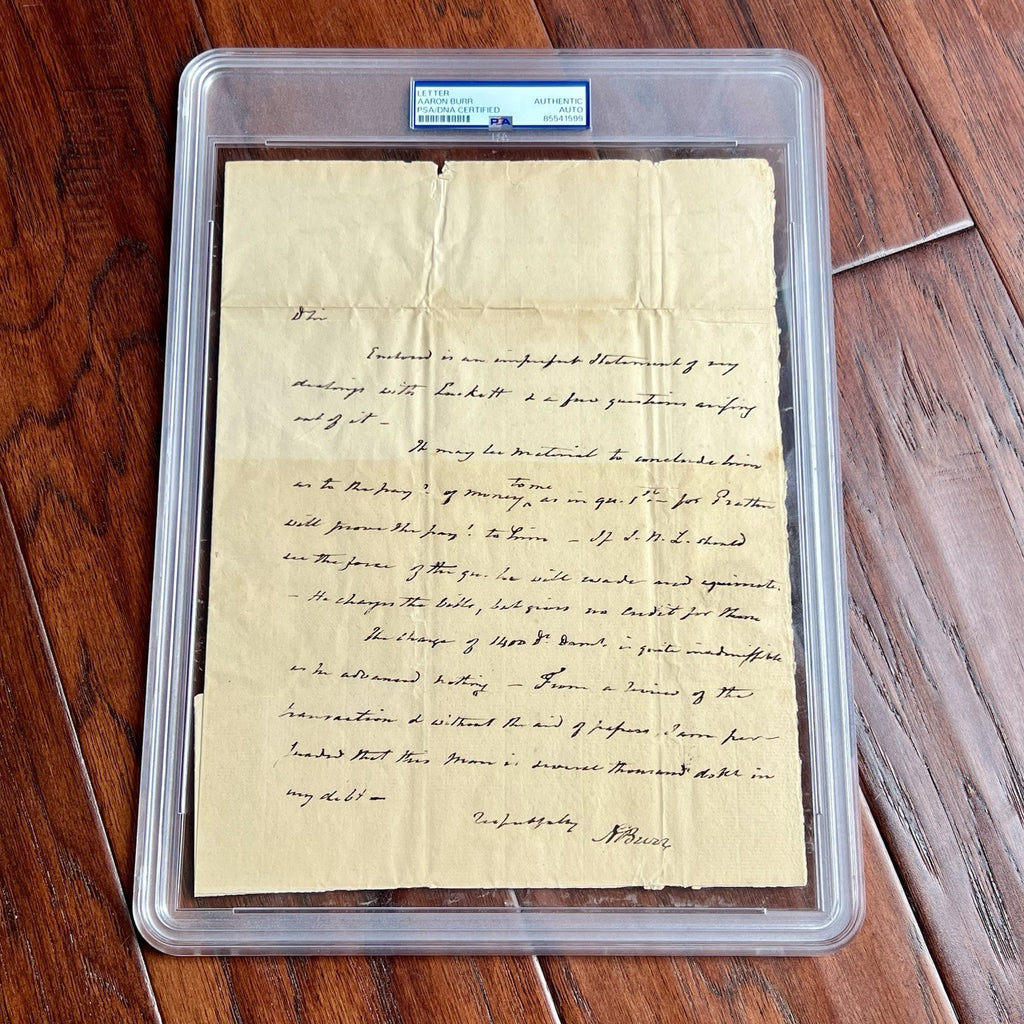 LETTER
AARON BURR
PSA/DNA CERTIFIED
AUTHENTIC
AUTO
85541599
PSA
D Sir
Enclosed is an imperfect Statement of my
dealings with Luckett & a few questions arising
out of it —
It may be material to conclude him
as to the pay.t of money to me as in qu. 1st — for
will prove the pay.t to him — If J. N. L. should
see the force of the qu. he will evade and equivocate.
— He charges the bills, but gives no credit for them
The charge of 1400 Ds. Dam.s is quite inadmissible
as he advanced nothing — From a view of the
transaction & without the aid of papers, I am per-
suaded that this Man is several thousand dolls in
my debt —
respectfully
A Burr